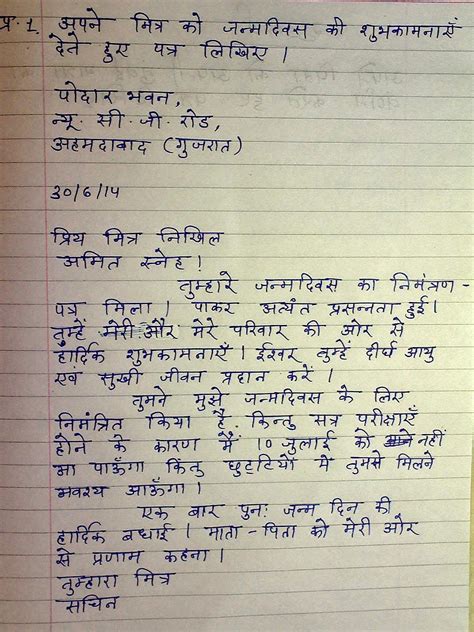 प्र. 1. अपने मित्र को जन्मदिवस की शुभकामनाएँ
देते हुए पत्र लिखिए ।
पोदार भवन,
न्यू. सी. जी. रोड,
अहमदाबाद (गुजरात)
30/6/14
प्रिय मित्र निखिल
अमित स्नेह !
तुम्हारे जन्मदिवस का निमंत्रण-
पत्र मिला । पाकर अत्यंत प्रसन्नता हुई ।
तुम्हें मेरी और मेरे परिवार की ओर से
हार्दिक शुभकामनाएँ । ईश्वर तुम्हें दीर्घ आयु
एवं सुखी जीवन प्रदान करें ।
तुमने मुझे जन्मदिवस के लिए
निमंत्रित किया है, किन्तु सत्र परीक्षाएँ
होने के कारण मैं 10 जुलाई को नहीं
आ पाऊँगा किंतु छुट्टियों में तुमसे मिलने
अवश्य आऊँगा ।
एक बार पुनः जन्म दिन की
हार्दिक बधाई । माता-पिता को मेरी ओर
से प्रणाम कहना ।
तुम्हारा मित्र
सचिन